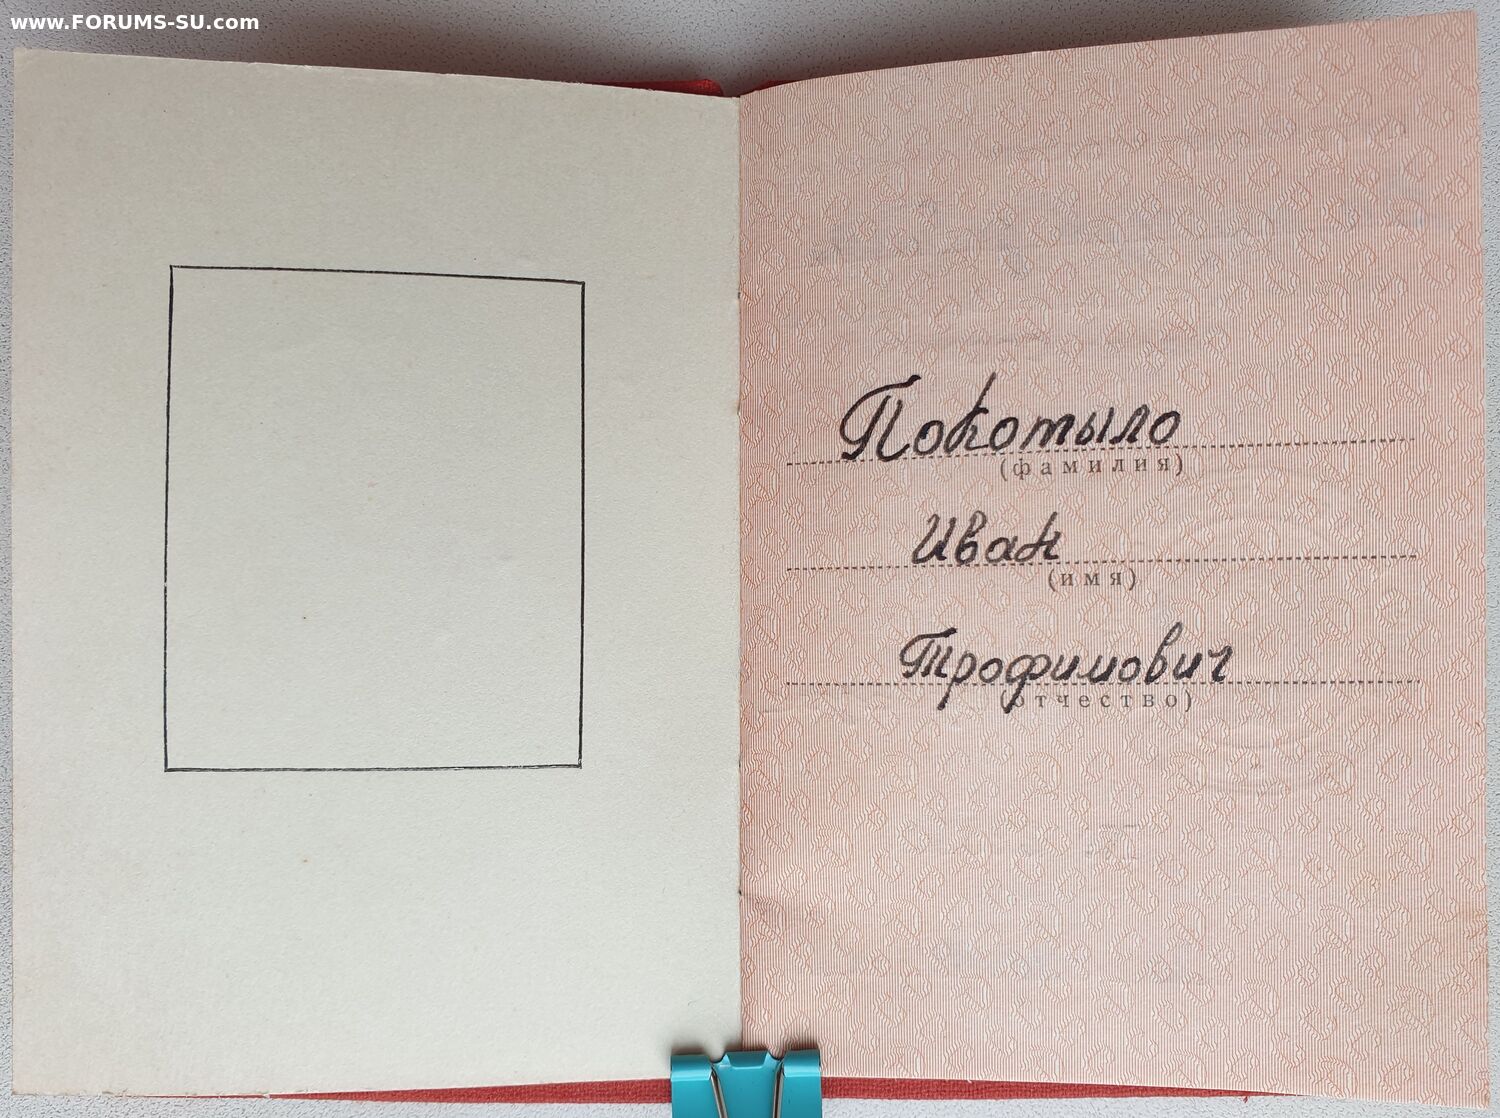 www.FORUMS-SU.com
Покотыло
(фамилия)
Иван
(имя)
Трофимович
(отчество)